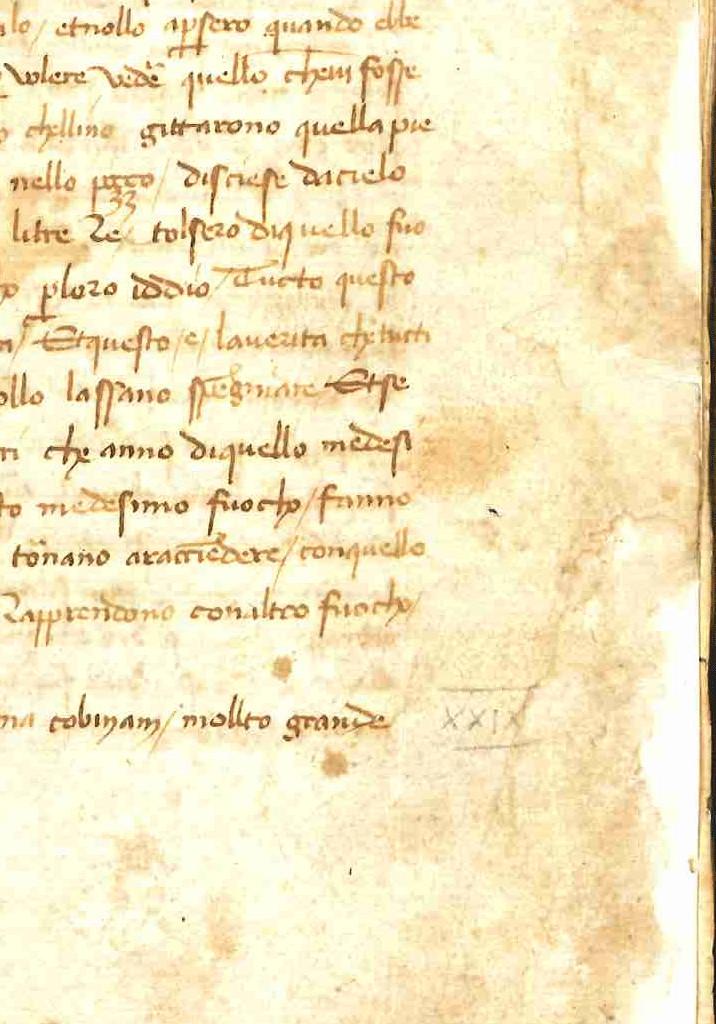 etnollo apsero quando ebbe
volere vedē quello chevi fosse
chellino gittarono quella pie
nello pozzo / disciese dacielo
litre Re / tolsero diquello fuo
p loro iddio / Tucto questo
/ Etquesto / e / laverita che tutti
ollo lassano spegniare Etse
che anno diquello medesi
to medesimo fuocho / fanno
tōnano araccīedere / conquello
Rapprendono conaltro fuocho /
na cobinam / mollto grande XXIX